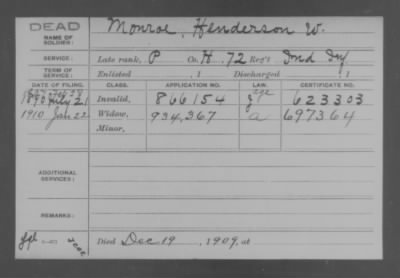 DEAD
NAME OF SOLDIER: Monroe, Henderson W.
SERVICE: Late rank, P Co. H. 72 Reg't Ind Inf
TERM OF SERVICE: Enlisted , 1 Discharged , 1
DATE OF FILING. CLASS. APPLICATION NO. LAW. CERTIFICATE NO.
1890 July 21 Invalid, 866154 J 623303
1910 Jan 22 Widow, 934,367 a 697364
Minor,
ADDITIONAL SERVICES:
REMARKS:
Died Dec 19 , 1909, at